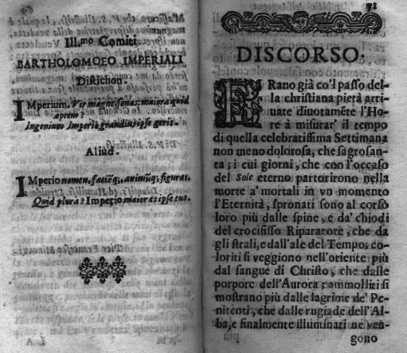 Ill.mo Comiti
BARTHOLOMOEO IMPERIALI
Distichon.
IMperium. Vir magne, sonas: minora quid optem?
Ingenium Imperii grandius ipse geris.
Aliud.
IMperio nomen, fatiq;, animiq; figuras,
Quid plura? Imperio maior es ipse tuo.
81
DISCORSO.
ERano già co'l passo del-
la christiana pietà arri-
uate diuotamēte l'Ho-
re à misurar' il tempo
di quella celebratissima Settimana
non meno dolorosa, che sagrosan-
ta; i cui giorni, che con l'occaso
del Sole eterno partorirono nella
morte a' mortali in vn momento
l'Eternità, spronati sono al corso
loro più dalle spine, e da' chiodi
del crocifisso Riparatore, che da
gli strali, e dall'ale del Tempo: co-
loriti si veggiono nell'oriente più
dal sangue di Christo, che dalle
porpore dell'Aurora; ammolliti si
mostrano più dalle lagrime de' Pe-
nitenti, che dalle rugiade dell'Al-
ba, e finalmente illuminari ne ven-
gono